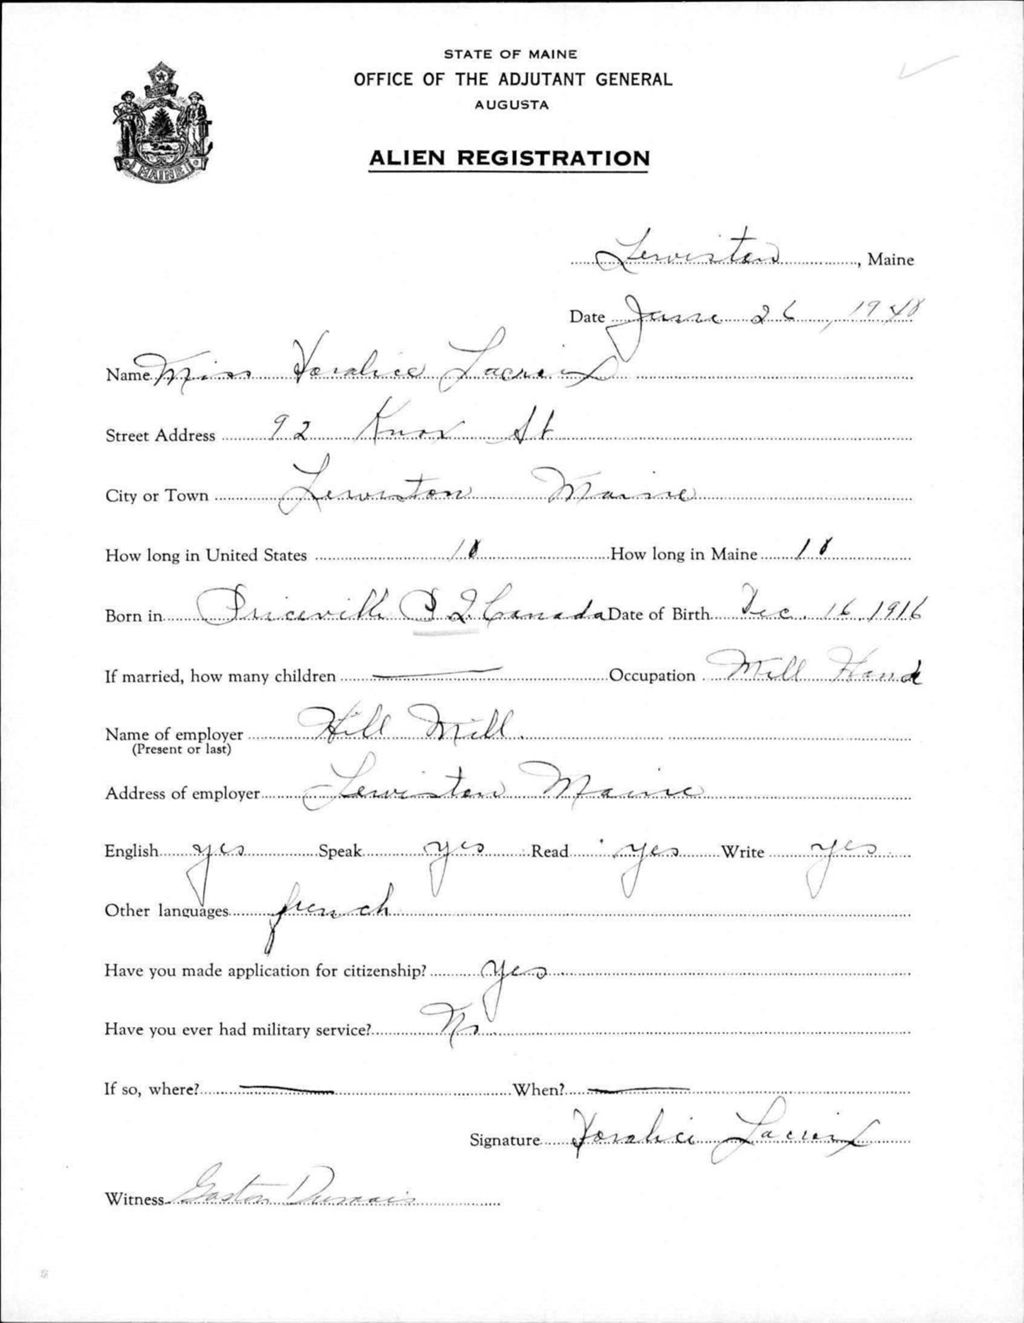 STATE OF MAINE
OFFICE OF THE ADJUTANT GENERAL
AUGUSTA
MAINE
ALIEN REGISTRATION
Lewiston, Maine
Date June 26, 1940
Name Miss Lacroix
Street Address 92 Knox St
City or Town Lewiston Maine
How long in United States How long in Maine
Born in Priceville P Q Canada Date of Birth Dec. 16, 1916
If married, how many children — Occupation Mill Hand
Name of employer Hill Mill.
(Present or last)
Address of employer Lewiston Maine
English yes Speak yes Read yes Write yes
Other languages french
Have you made application for citizenship? Yes
Have you ever had military service? No
If so, where? — When? —
Signature Lacroix
Witness Gaston Dumais